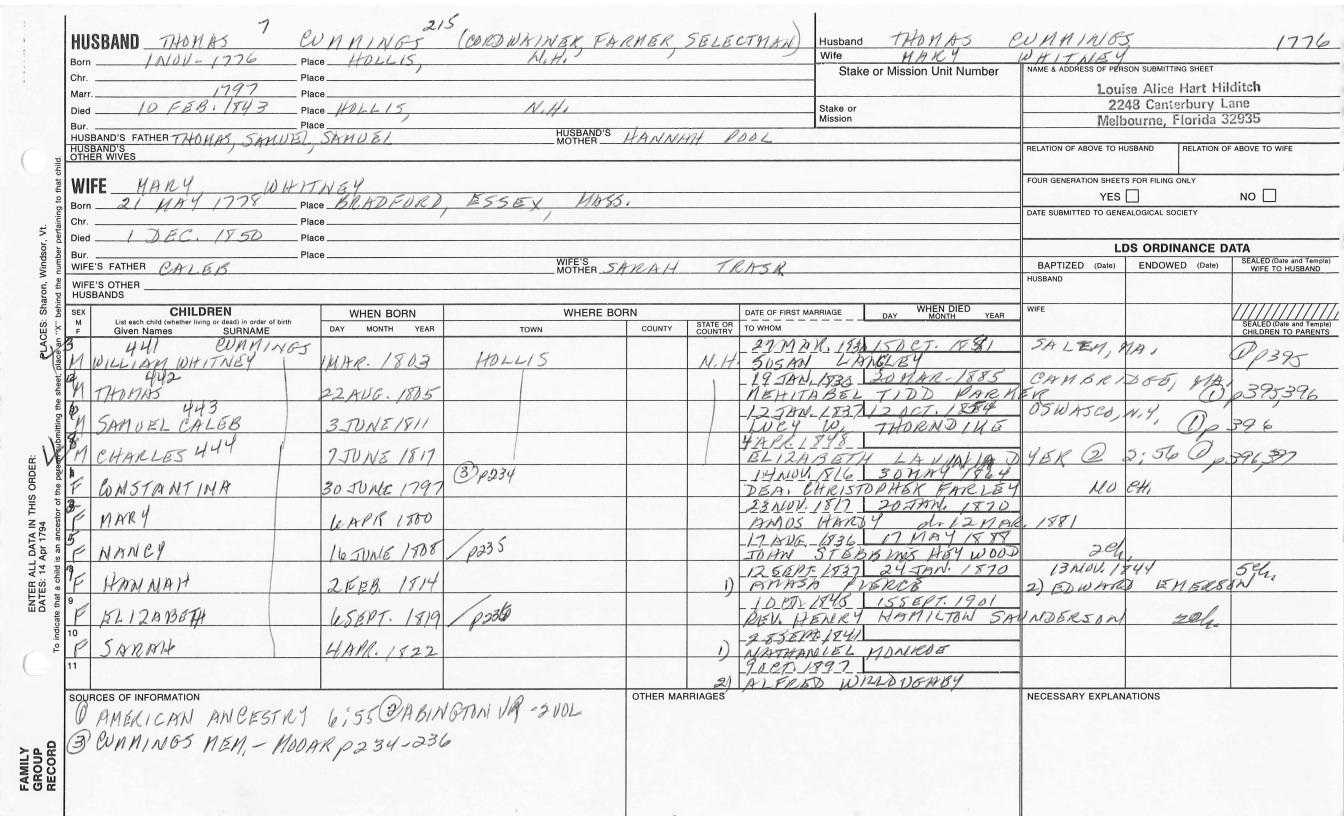 HUSBAND THOMAS 7 CUMMINGS 215 (CORDWAINER, FARMER, SELECTMAN)
Born 1 NOV - 1776 Place HOLLIS, N.H.
Chr. Place
Marr. 1797 Place
Died 10 FEB. 1843 Place HOLLIS, N.H.
Bur. Place
HUSBAND'S FATHER THOMAS, SAMUEL, SAMUEL HUSBAND'S MOTHER HANNAH POOL
HUSBAND'S OTHER WIVES
Husband THOMAS CUMMINGS 1776
Wife MARY WHITNEY
Stake or Mission Unit Number
Stake or Mission
NAME & ADDRESS OF PERSON SUBMITTING SHEET
Louise Alice Hart Hilditch
2248 Canterbury Lane
Melbourne, Florida 32935
RELATION OF ABOVE TO HUSBAND RELATION OF ABOVE TO WIFE
FOUR GENERATION SHEETS FOR FILING ONLY
YES NO
DATE SUBMITTED TO GENEALOGICAL SOCIETY
WIFE MARY, WHITNEY
Born 21 MAY 1778 Place BRADFORD, ESSEX, MASS.
Chr. Place
Died 1 DEC. 1850 Place
Bur. Place
WIFE'S FATHER CALEB WIFE'S MOTHER SARAH TRASK
WIFE'S OTHER HUSBANDS
LDS ORDINANCE DATA
BAPTIZED (Date) ENDOWED (Date) SEALED (Date and Temple) WIFE TO HUSBAND
HUSBAND
WIFE
SEALED (Date and Temple) CHILDREN TO PARENTS
SEX M F CHILDREN WHEN BORN WHERE BORN DATE OF FIRST MARRIAGE WHEN DIED
List each child (whether living or dead) in order of birth
Given Names SURNAME DAY MONTH YEAR TOWN COUNTY STATE OR COUNTRY TO WHOM DAY MONTH YEAR
3 441 CUMMINGS 15 OCT. SALEM, MA. ① p395
M WILLIAM WHITNEY 1 MAR. 1803 HOLLIS N.H. SUSAN LANGLEY
442 20 MAR - 1885 CAMBRIDGE, MA.
M THOMAS 22 AUG. 1805 MEHITABEL TIDD PARKER ① p395,396
443 12 JAN. 1837 12 OCT. OSWASCO, N.Y.
M SAMUEL CALEB 3 JUNE 1811 LUCY W. THORNDIKE ① p396
4 APR. 1848
M CHARLES 444 7 JUNE 1817 ELIZABETH LAVINIA DYER ② 2:56 ① p396,397
③ p234 14 NOV. 1816 30 MAY 1864
F CONSTANTINA 30 JUNE 1797 DEA. CHRISTOPHER FARLEY NO CH.
23 NOV. 1817 20 JAN. 1870
F MARY 6 APR 1800 AMOS HARDY d. 12 MAR. 1881
5 17 AUG. 1836 17 MAY 1888
F NANCY 16 JUNE 1808 p235 JOHN STEBBINS HEYWOOD 2 ch.
12 SEPT. 1837 24 JAN. 1870 13 NOV. 1844 5 ch.
F HANNAH 2 FEB. 1814 1) AMASA PIERCE 2) EDWARD EMERSON
9 15 SEPT. 1901
F ELIZABETH 6 SEPT. 1819 p236 REV. HENRY HAMILTON SAUNDERSON
10 28 SEPT. 1841
F SARAH 4 APR. 1822 1) NATHANIEL MONROE
11 9 OCT. 1897
2) ALFRED WILLOUGHBY
SOURCES OF INFORMATION OTHER MARRIAGES NECESSARY EXPLANATIONS
① AMERICAN ANCESTRY 6:55 ② ABINGTON VR - 2 VOL
③ CUMMINGS MEM. - MOOAR p234-236
PLACES: Sharon, Windsor, Vt.
ENTER ALL DATA IN THIS ORDER:
DATES: 14 Apr 1794
To indicate that a child is an ancestor of the person submitting the sheet, place an "X" behind the number pertaining to that child.
FAMILY GROUP RECORD